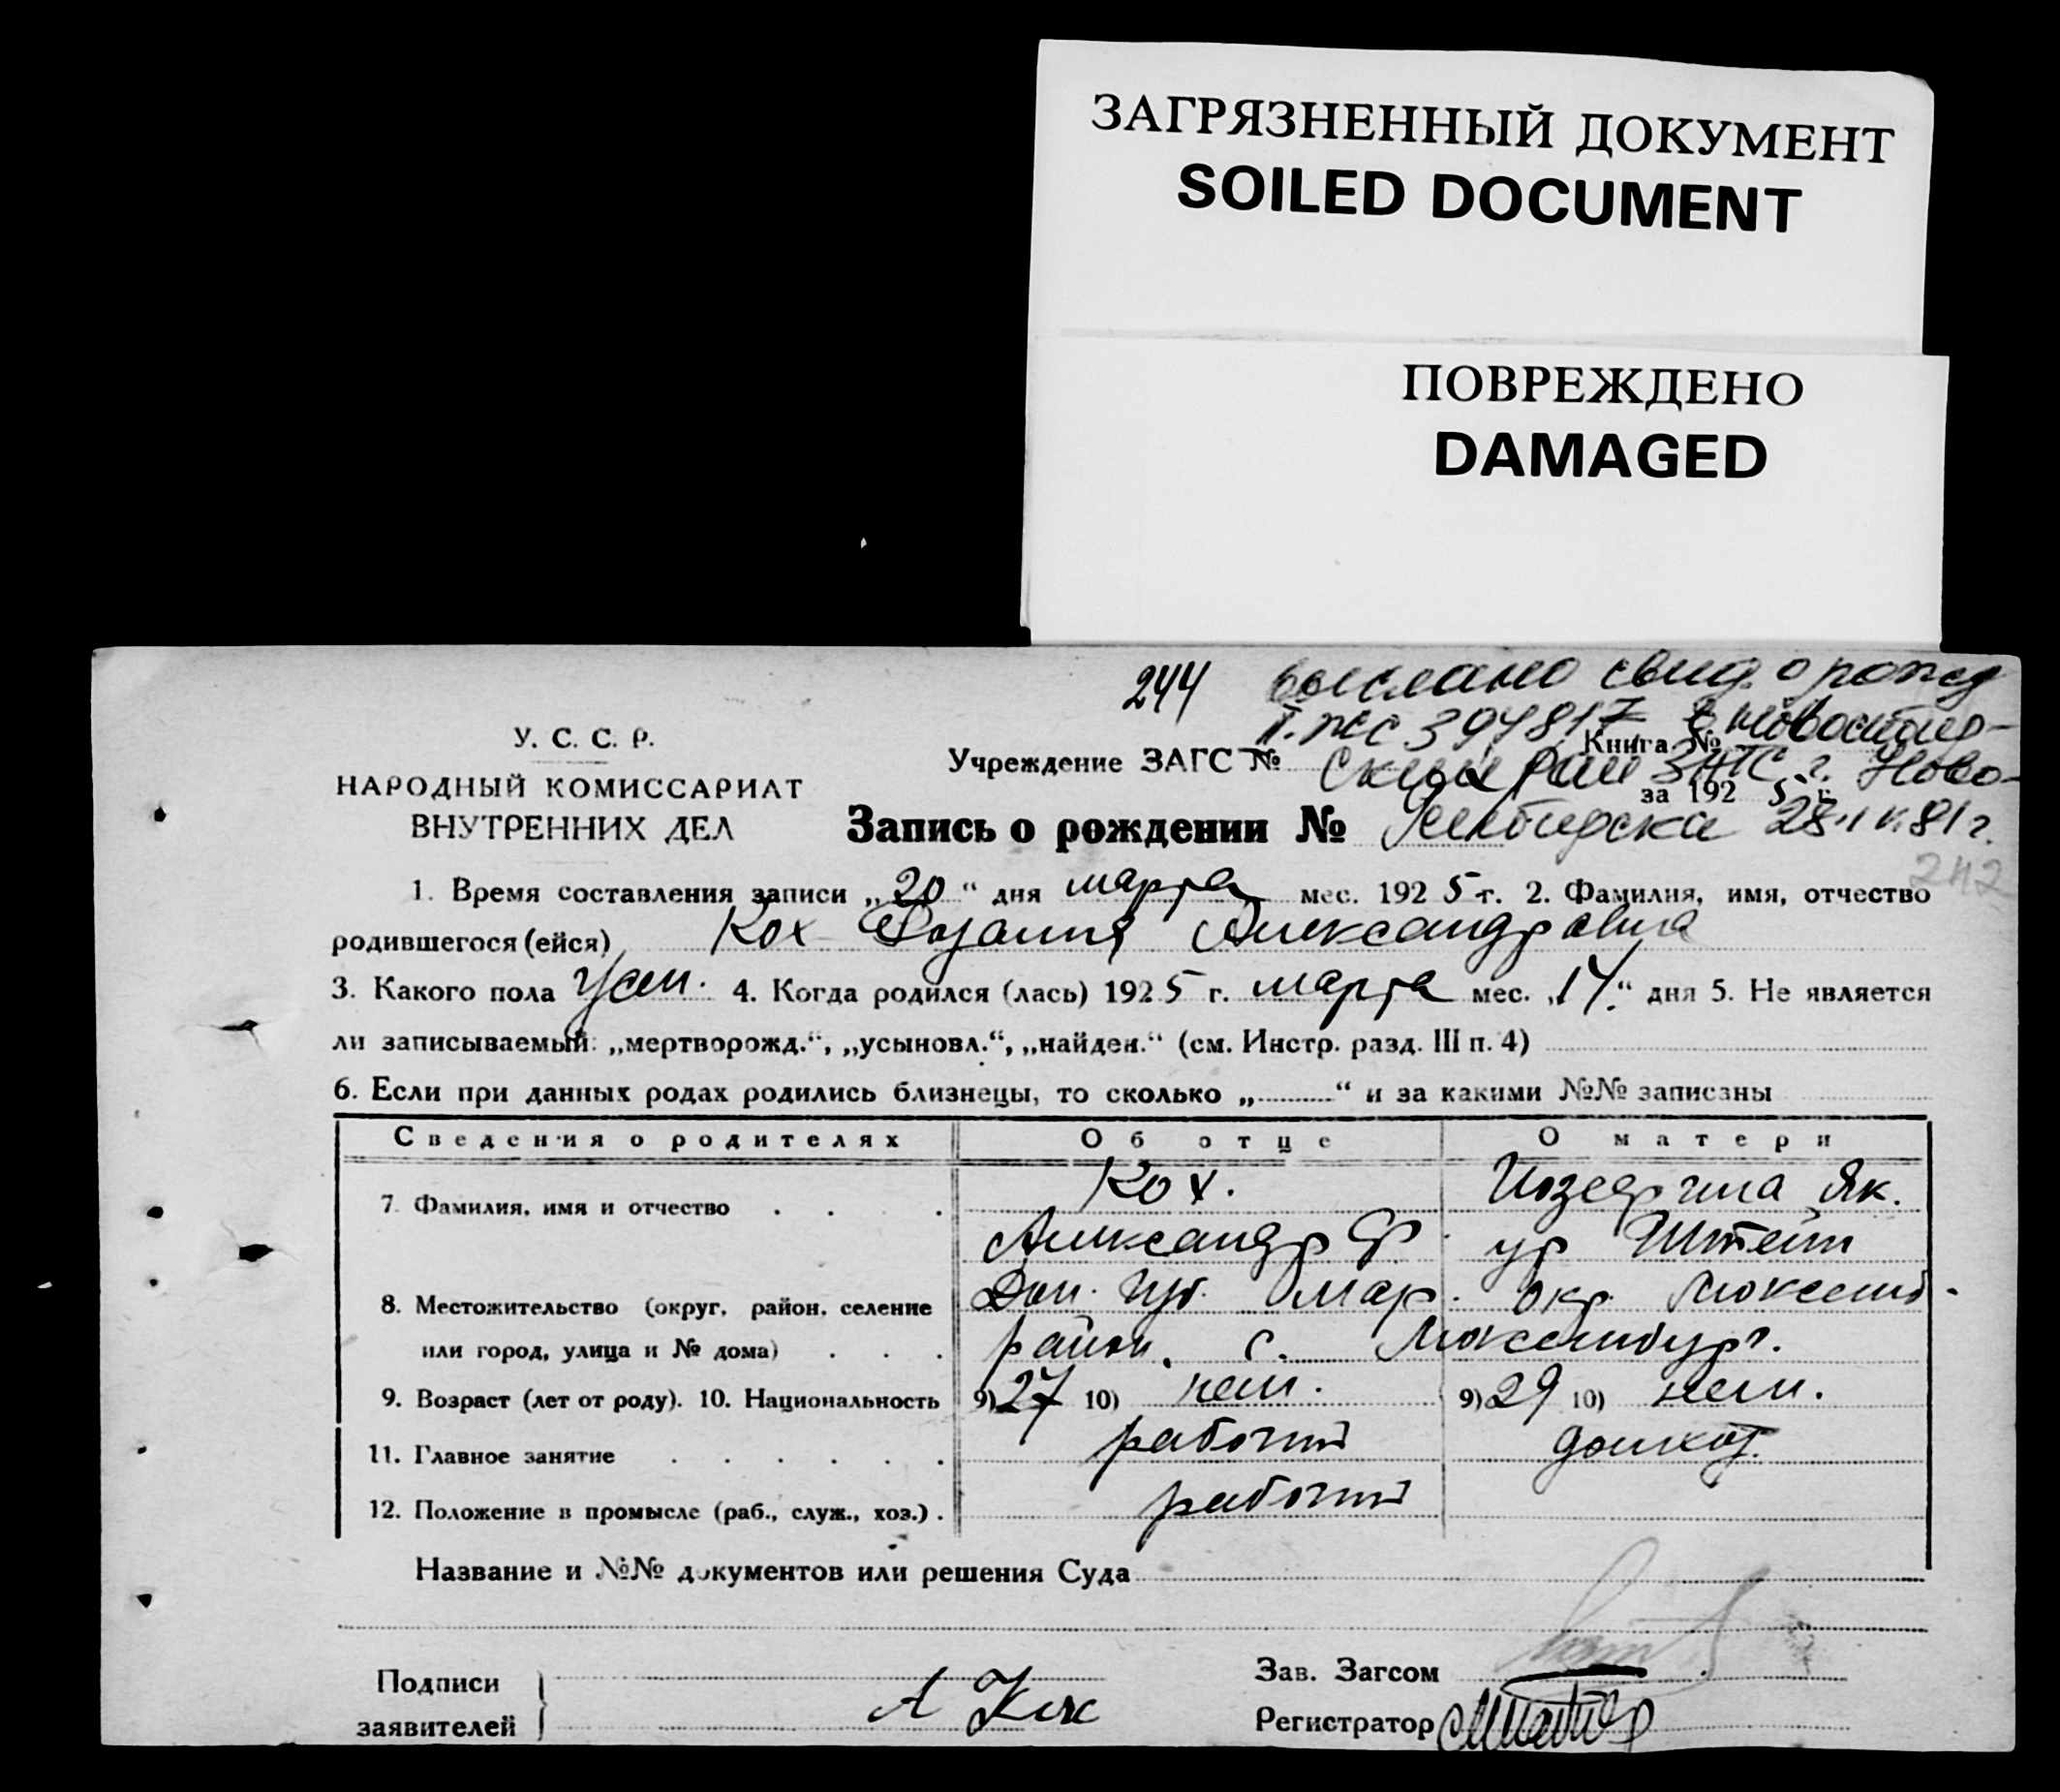 ЗАГРЯЗНЕННЫЙ ДОКУМЕНТ
SOILED DOCUMENT
ПОВРЕЖДЕНО
DAMAGED
244 выслано свид. о рожд
394817 в Новосибир-
У. С. С. Р.
НАРОДНЫЙ КОМИССАРИАТ
ВНУТРЕННИХ ДЕЛ
Учреждение ЗАГС № Книга №
ский рай ЗАГС г. Ново-
за 192 5 г.
Запись о рождении №
сибирска 81 г.
242
1. Время составления записи „20“ дня марта мес. 192 5 г. 2. Фамилия, имя, отчество
родившегося (ейся) Кох Розалия Александровна
3. Какого пола жен. 4. Когда родился (лась) 192 5 г. марта мес. „14.“ дня 5. Не является
ли записываемый: „мертворожд.“, „усыновл.“, „найден.“ (см. Инстр. разд. III п. 4)
6. Если при данных родах родились близнецы, то сколько „..........“ и за какими №№ записаны
Сведения о родителях Об отце О матери
7. Фамилия, имя и отчество Кох. Як.
Александр Ф ур Штейн
8. Местожительство (округ, район, селение Дон. губ. Мар. окр. Люксемб.
или город, улица и № дома) район. с. Люксембург.
9. Возраст (лет от роду). 10. Национальность 9) 27 10) нем. 9) 29 10) нем.
11. Главное занятие рабочий домхоз.
12. Положение в промысле (раб., служ., хоз.) рабочий
Название и №№ документов или решения Суда
Подписи
заявителей
А Кох
Зав. Загсом
Регистратор